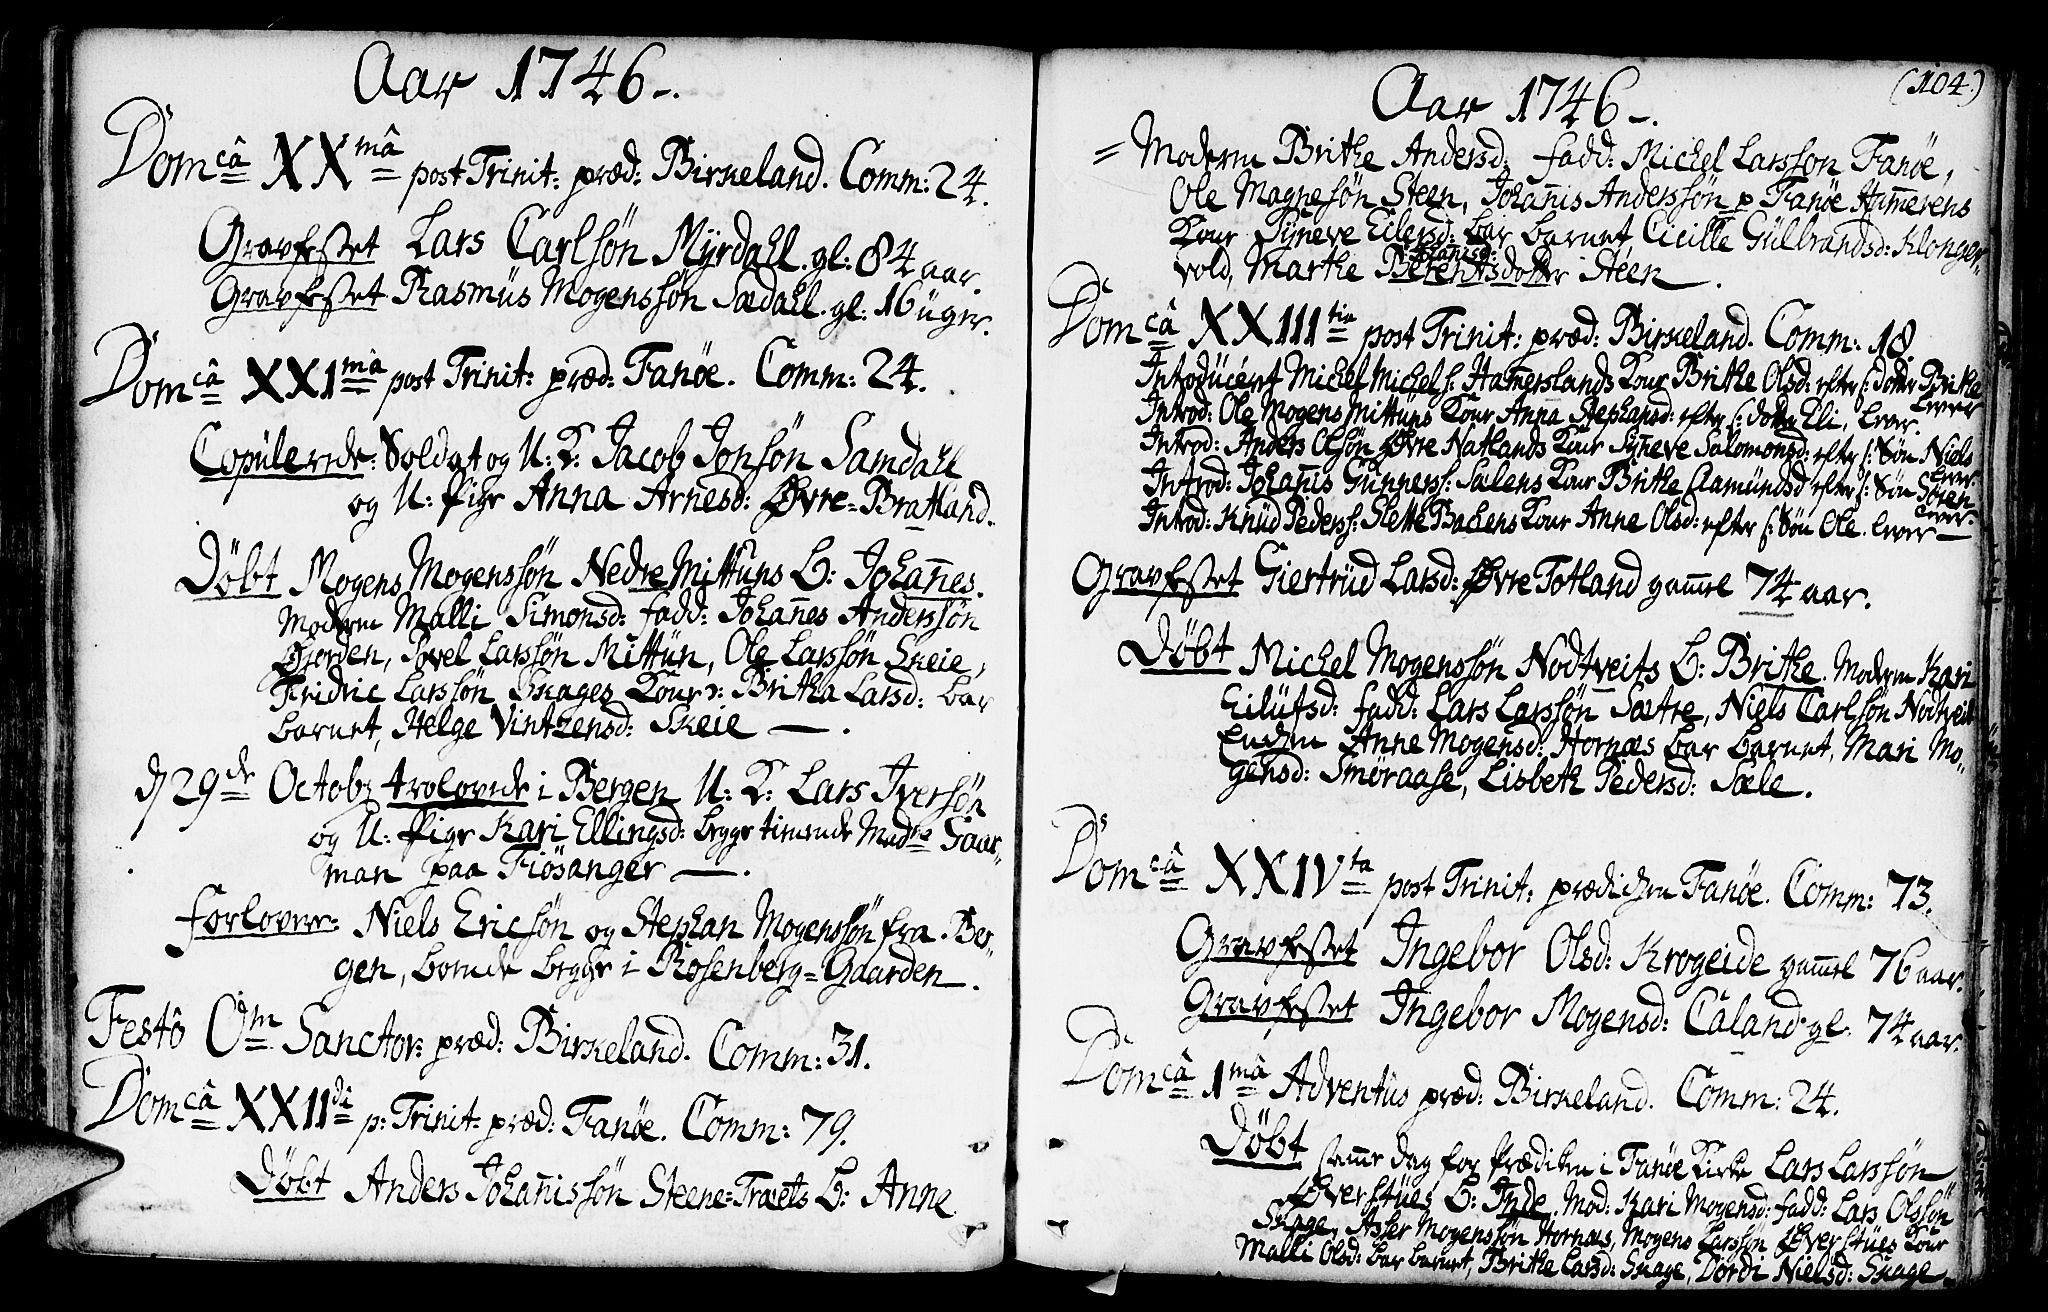 Aar 1746.
Domcâ XXmâ post Trinit: præd: Birkeland. Comm: 24.
Gravfestet Lars Carlsön Myrdahl. gl: 84 aar.
Gravfestet Rasmüs Mogenssön Sædahl. gl: 16 üger.
Domcâ XXImâ post Trinit: præd: Fanöe. Comm: 24.
Copülerede: Soldat og U: K: Jacob Jonsön Samdahl
og U: Pige Anna Arnesd: Øvre-Bratland.
Döbt Mogens Mogenssön Nedre Mittuns B: Johañes.
Moderen Malli Simonsd: fadd: Johañes Anderssön
Fjorden, Povel Larssön Mittün, Ole Larssön Skeie,
Fridric Larssön Skages Kone: Britha Larsd: bar
barnet, Helge Vintzensd: Skeie —.
d 29de Octobr trolovede i Bergen U: K: Lars Iversön
og U: Pige Kari Ellingsd: begge tienende Made Gaar-
man paa Fiösanger —.
forlovere: Niels Ericsön og Stephan Mogenssön fra Ber-
gen, boende begge i Rosenberg-Gaarden.
Festô Om Sanctor: præd: Birkeland. Comm: 31.
Domcâ XXIIdi p: Trinit: præd: Fanöe. Comm: 79.
Döbt Anders Johañissön Steene-Træets B: Anne
(104.)
Aar 1746.
= Moderen Brithe Andersd: fadd: Michel Larsson Fanöe,
Ole Magnesön Steen, Johañis Anderssön p Fanöe Ham̃erens
Kone Syneve Eilersd: bar barnet, Cicille Gülbrandsd: Klonger-
Johañisd:
vold, Marthe Berentsdotter Steen.
Domcâ XXIIItia post Trinit: præd: Birkeland. Comm: 18.
Introdücert Michel Michels: Ham̃erslands Kone Brithe Olsd: efter s: dotter Brithe
lever
Introd: Ole Mogens Mittuns Kone Anna Stephansd: efter s: dotter Eli, lever.
Introd: Anders Olsön Øvre Natlands Kone Syñeve Salomonsd: efter s: Sön Niels
lever.
Introd: Johañis Gunners: Sælens Kone Brithe Aamündsd efter s: Sön Sören
lever.
Introd: Knüd Peders: Slette Bachens Kone Anne Olsd: efter s: Sön Ole. lever —
Gravfestet Giertrüd Larsd: Øvre Totland gam̃el 74 aar.
Döbt Michel Mogenssön Nodtveits B: Brithe. Moderen Kari
Eilüfsd: fadd: Lars Larssön Sætre, Niels Carlsön Nodtveit
Enchen Anne Mogensd: Hornæs bar barnet, Mari Mo-
gensd: Smöraase, Lisbeth Pedersd: Sæle.
Domcâ XXIVta post Trinit: prædichen Fanöe. Comm: 73.
Gravfestet Ingebor Olsd: Krogeide gam̃el 76 aar.
Gravfestet Ingebor Mogensd: Câland. gl. 74 aar.
Domcâ 1mâ Adventüs præd: Birkeland. Comm: 24.
Döbt samme dag for Prædiken i Fanöe Kirke Lars Larssön
Øverstües B: Inde. Mod: Kari Mogensd: fadd: Lars Olssön
Skage, Asser Mogenssön Hornæs, Mogens Larssön Øverstües Kone
Malli Olsd: bar barnet, Brithe Larsd: Skage, Dordi Nielsd: Skage.